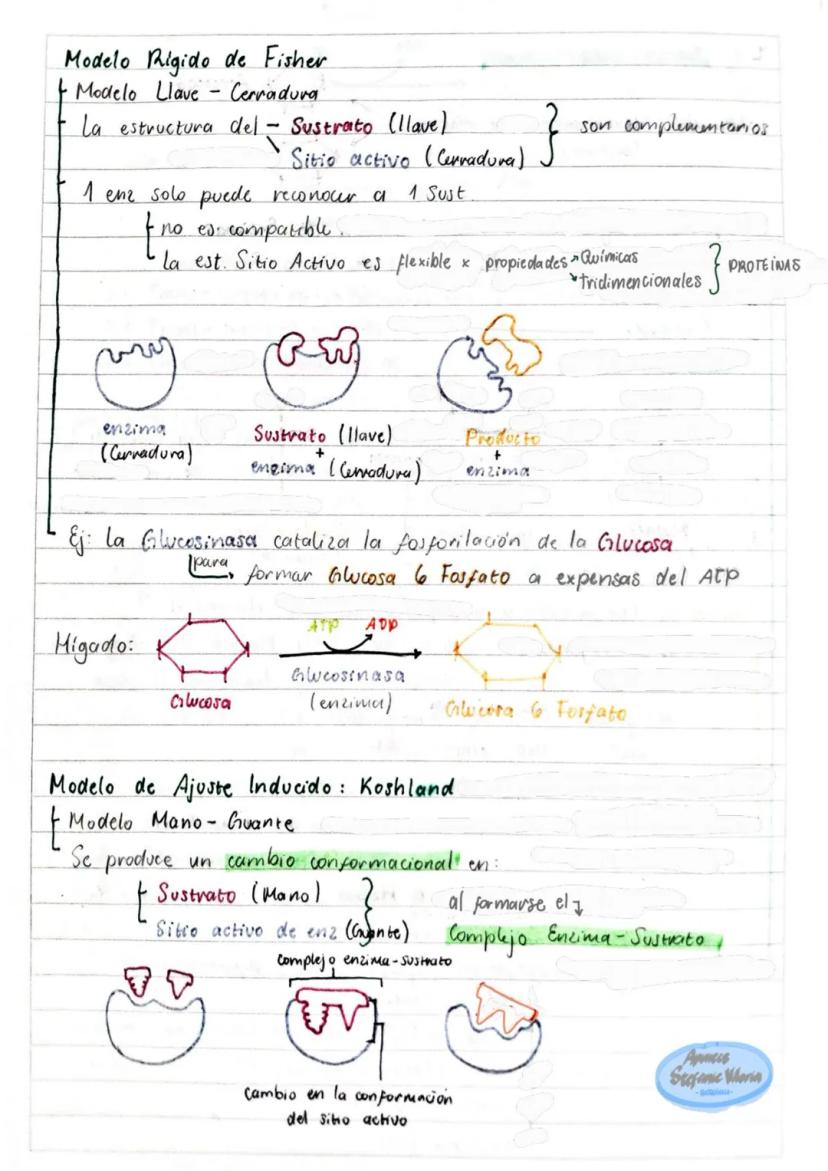 Modelo Rígido de Fisher
Modelo Llave - Cerradura
La estructura del - Sustrato (llave)
Sitio activo (Cerradura)
son complementarios
1 enz solo puede reconocer a 1 Sust.
no es compatible.
la est. Sitio Activo es flexible x propiedades Químicas
tridimencionales
PROTEÍNAS
enzima
(Cerradura)
Sustrato (llave)
+
enzima (Cerradura)
Producto
+
enzima
Ej: la Glucosinasa cataliza la fosforilación de la Glucosa
para
formar Glucosa 6 Fosfato a expensas del ATP
Hígado:
ATP
ADP
Glucosinasa
(enzima)
Glucosa
Glucosa 6 Fosfato
Modelo de Ajuste Inducido: Koshland
Modelo Mano-Guante
Se produce un cambio conformacional en:
Sustrato (Mano)
Sitio activo de enz (Guante)
al formarse el
Complejo Enzima-Sustrato
complejo enzima-sustrato
cambio en la conformación
del sitio activo
Apuntes
Stefanie